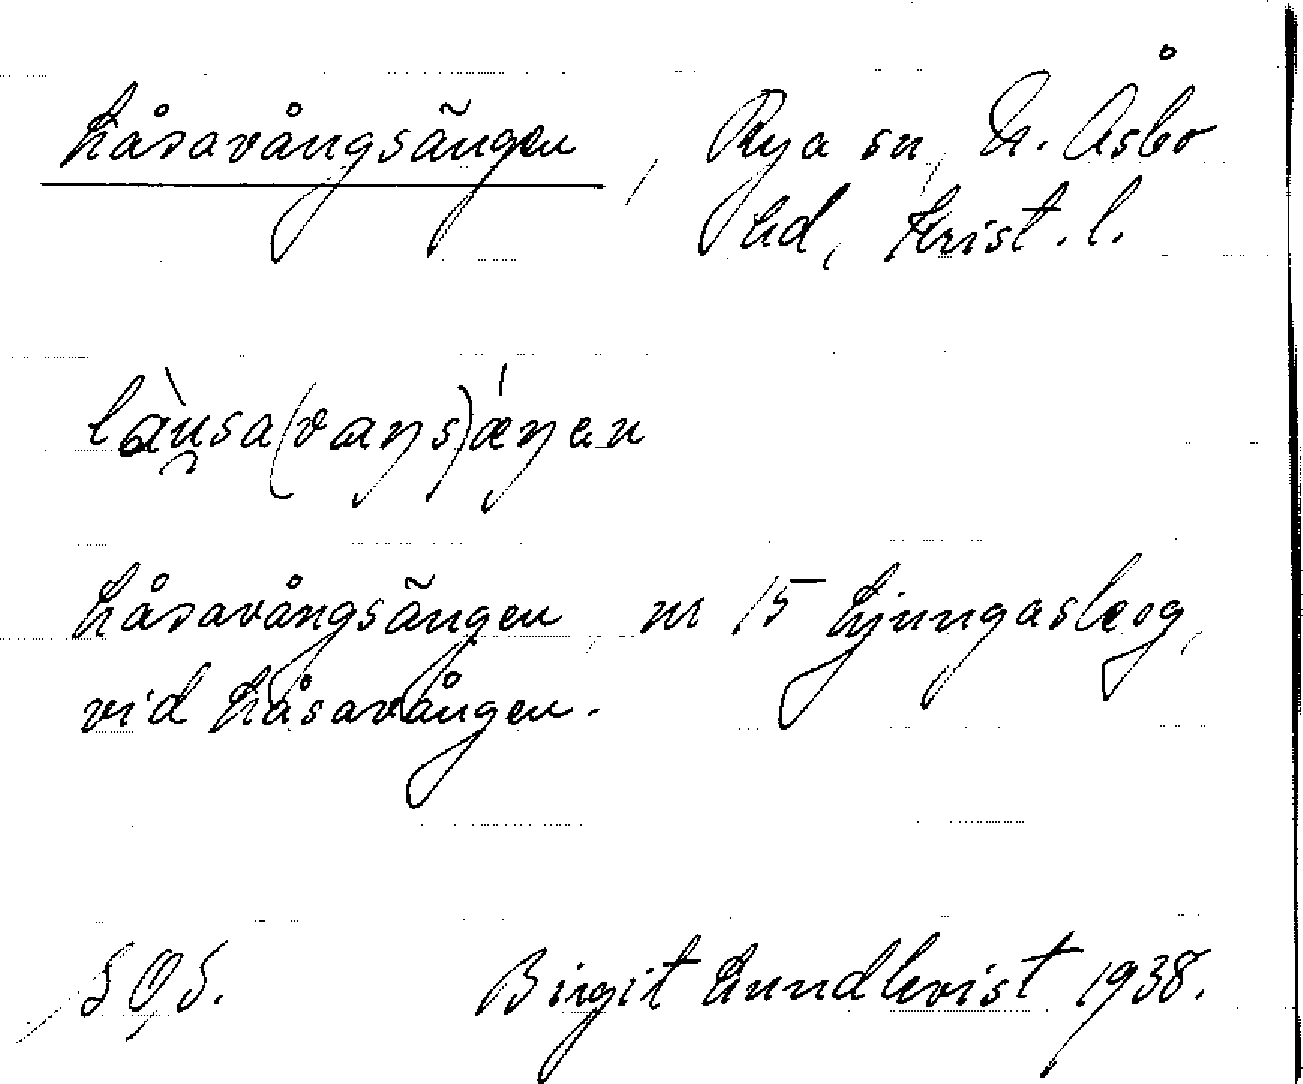 Låsavångsängen, Rya sn, N. Åsbo
hd, Krist. l.
làu̯sa(vaŋs)ǽŋen
Låsavångsängen, nr 15 Ljungaskog,
vid Låsavången.
SOS. Birgit Lundkvist 1938.